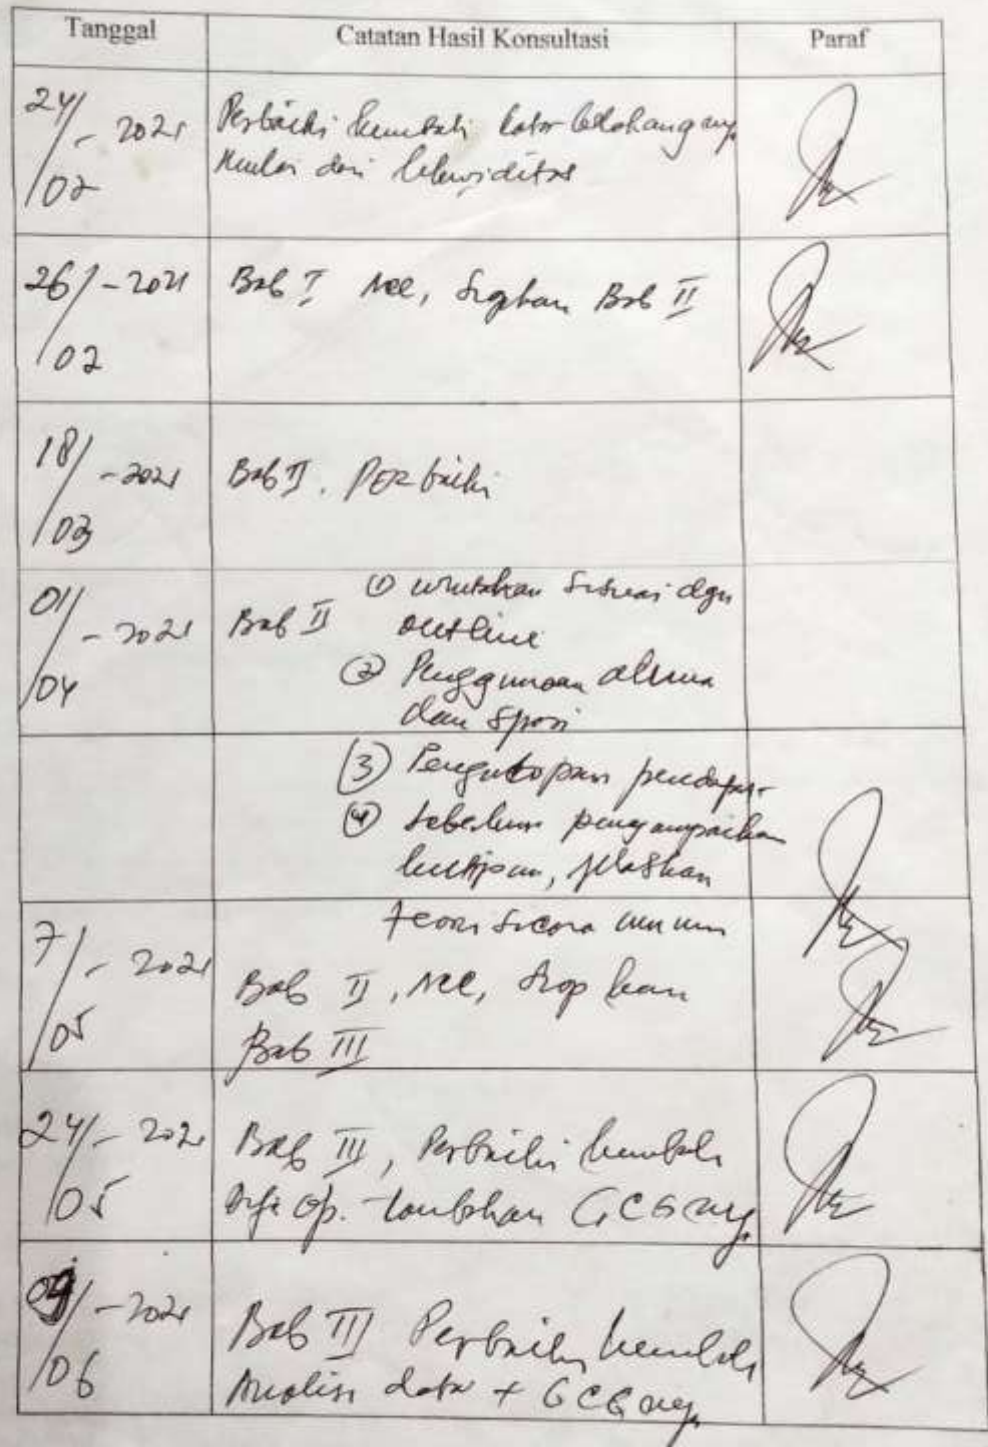 Tanggal Catatan Hasil Konsultasi Paraf
24/02-2021 Perbaiki kembali latar belakangnya
Mulai dari likuiditas
26/02-2021 Bab I Acc, Siapkan Bab II
18/03-2021 Bab II. Perbaiki
01/04-2021 Bab II ① urutkan sesuai dgn
outline
② Penggunaan alinea
dan spasi
③ Pengutipan pendapat
④ Sebelum penyampaian
kutipan, jelaskan
teori secara umum
7/05-2021 Bab II, Acc, Siapkan
Bab III
24/05-2021 Bab III, Perbaiki kembali
Defi Op. tambahkan GCG nya
09/06-2021 Bab III Perbaiki kembali
Analisi data + GCG nya